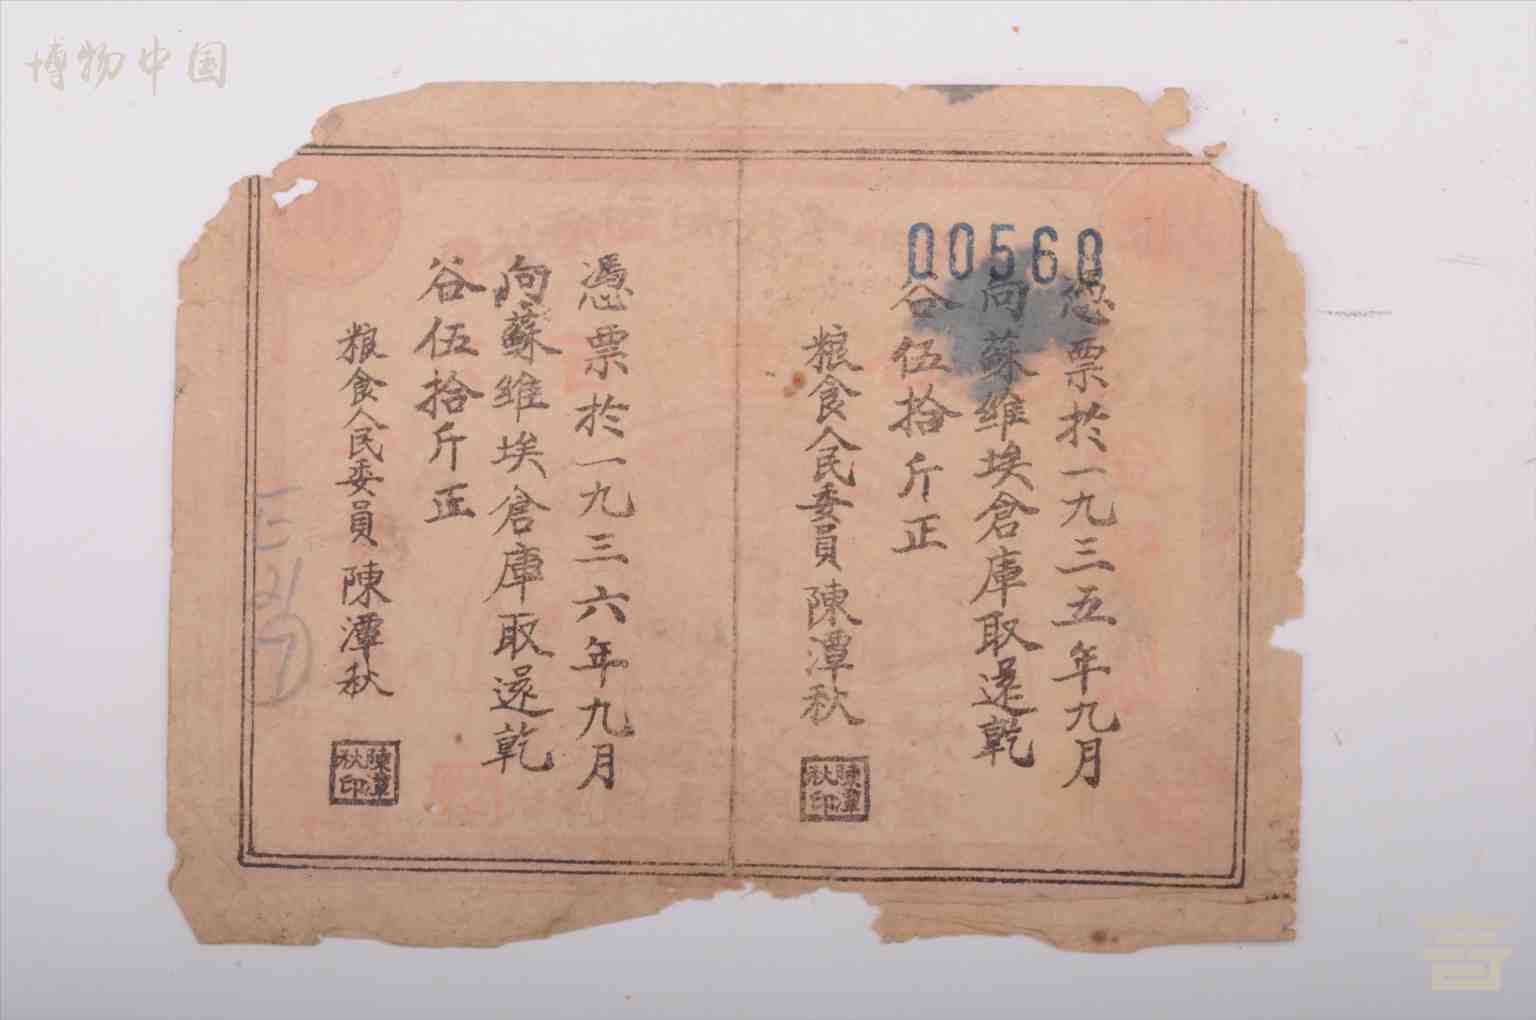 博物中国
00560
憑票於一九三五年九月
向蘇維埃倉庫取還乾
谷伍拾斤正
粮食人民委員 陳潭秋
陳潭秋印
憑票於一九三六年九月
向蘇維埃倉庫取還乾
谷伍拾斤正
粮食人民委員 陳潭秋
陳潭秋印